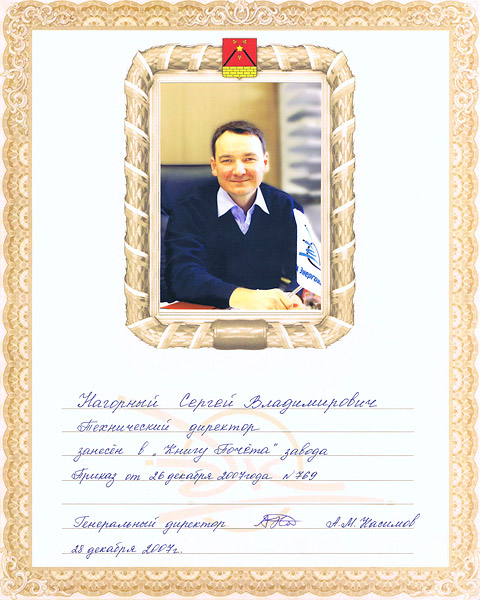 Энерган
Нагорный Сергей Владимирович
Технический директор
занесён в „Книгу Почёта" завода
Приказ от 26 декабря 2007года N 769
Генеральный директор А.М. Насимов
28 декабря 2007г.